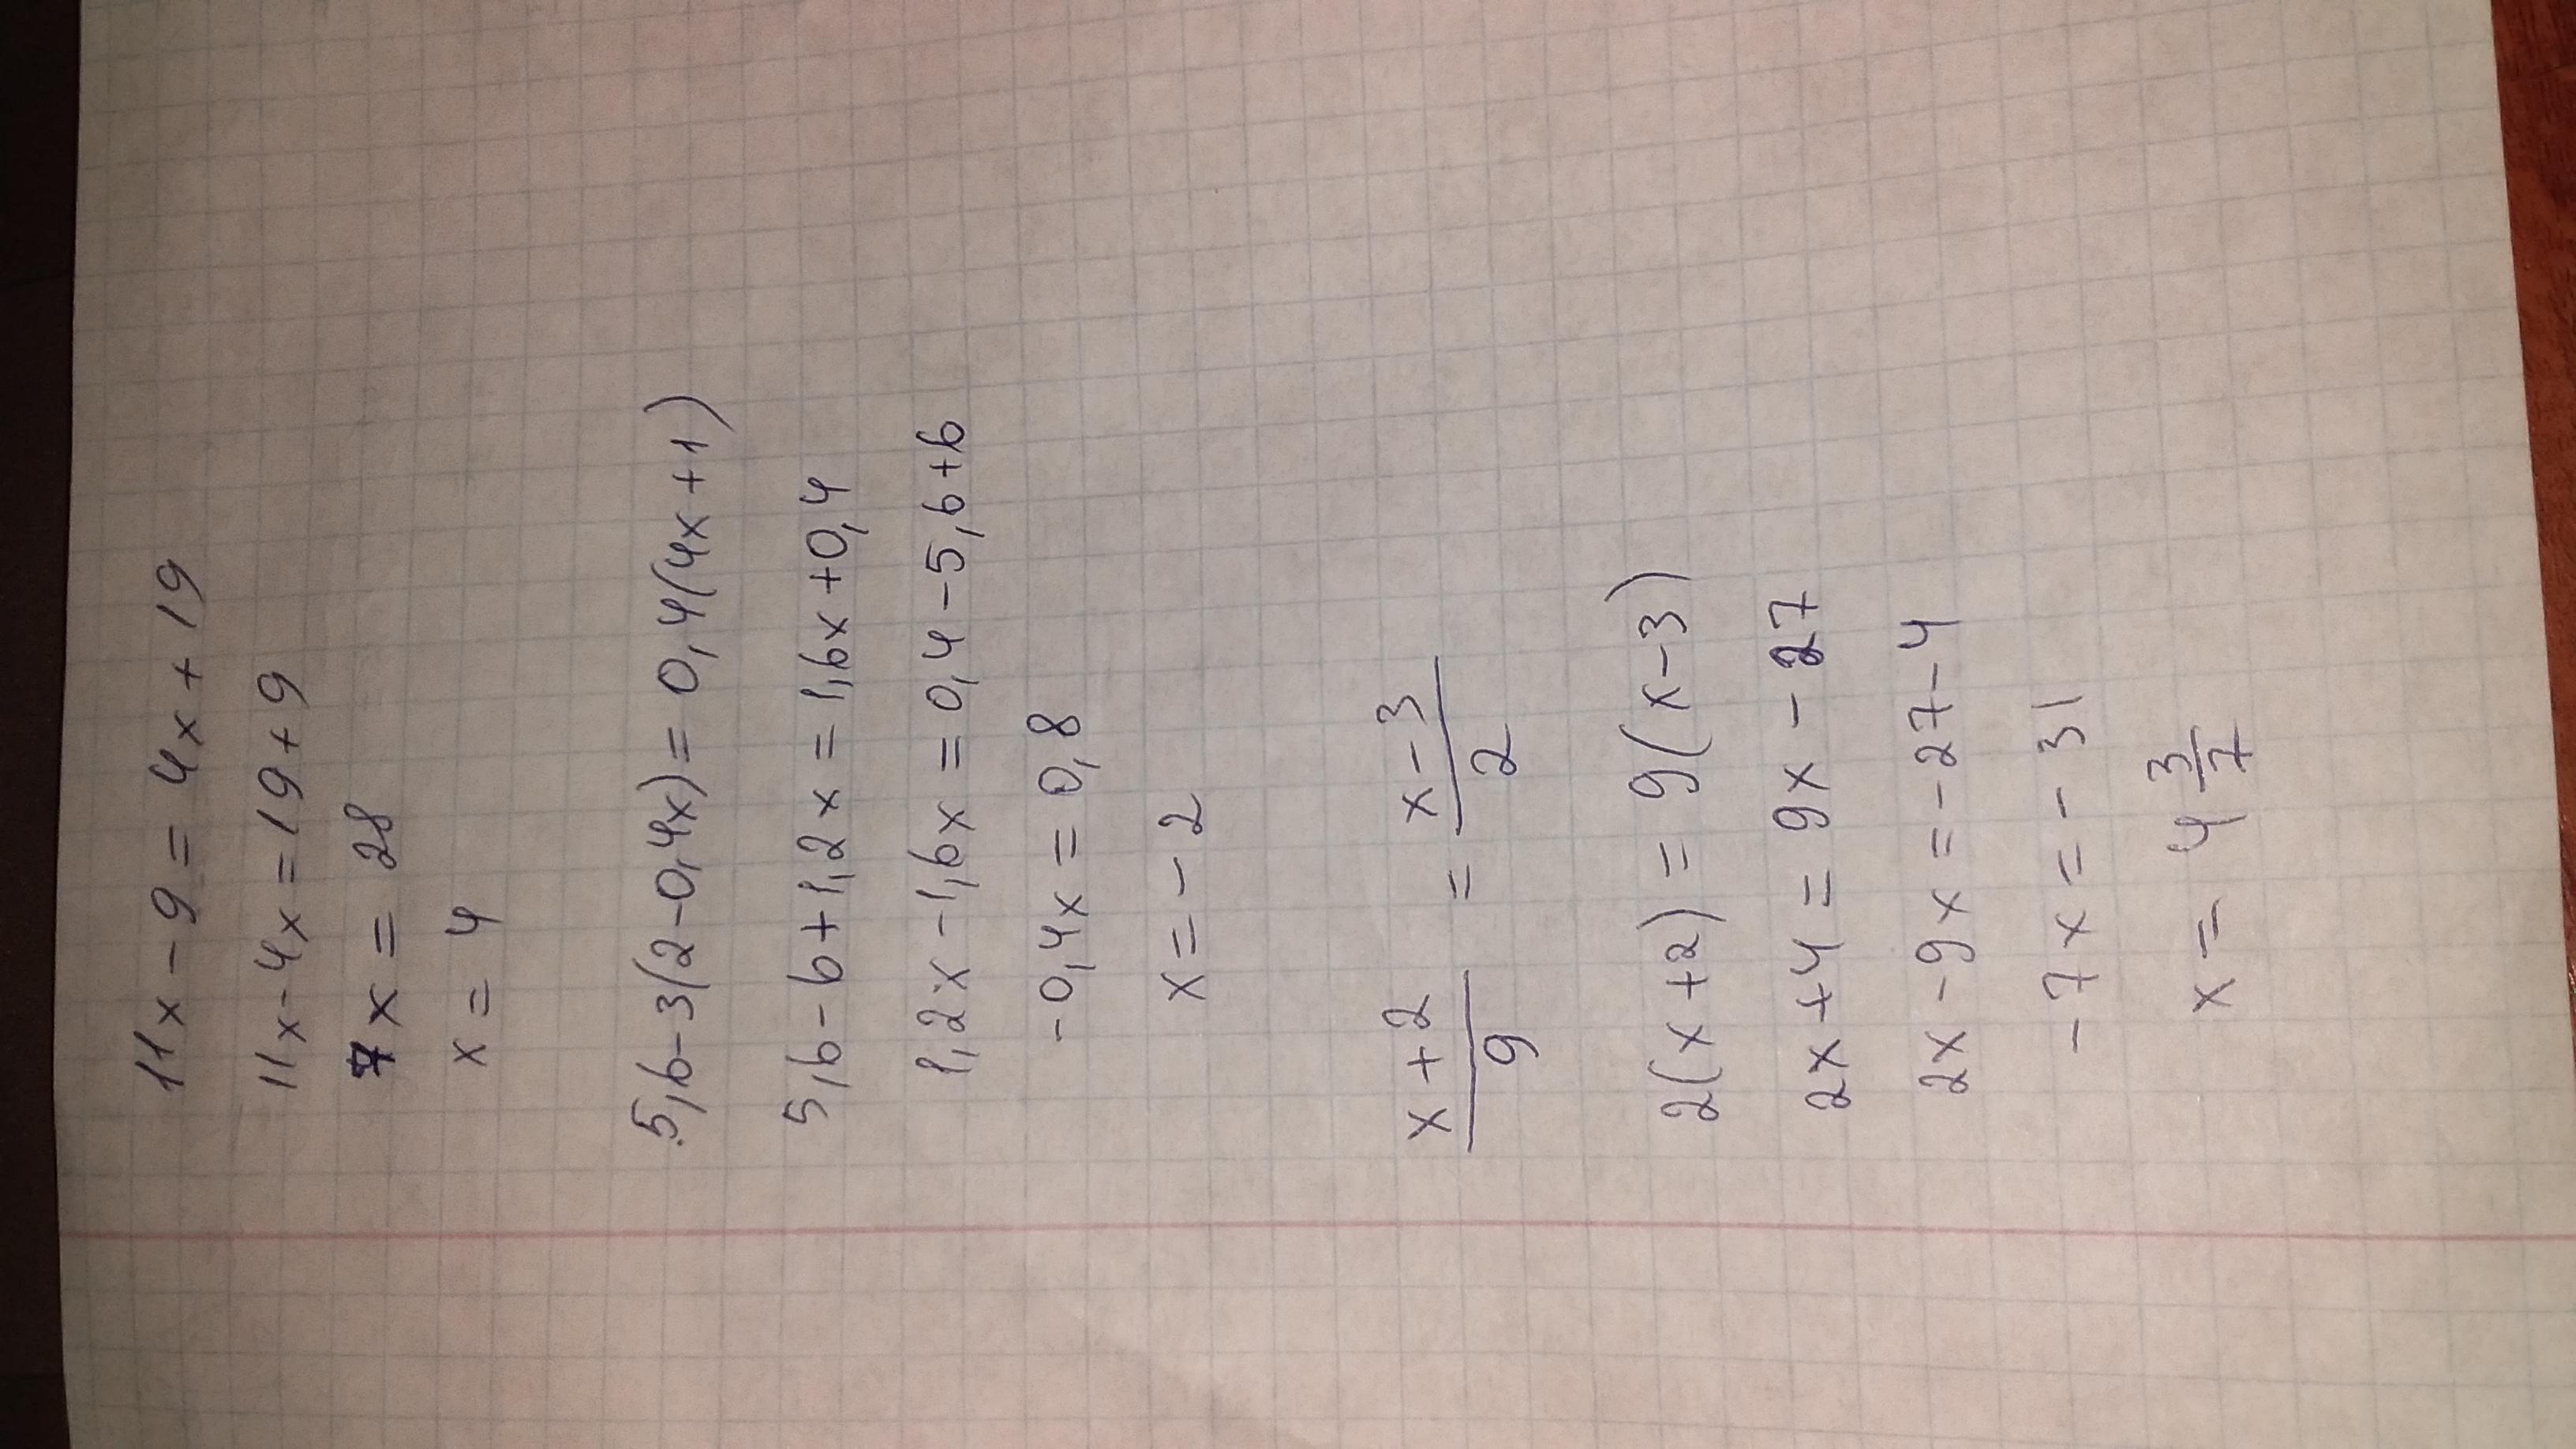 11x - 9 = 4x + 19
11x - 4x = 19 + 9
7x = 28
x = 4
5,6 - 3(2 - 0,4x) = 0,4(4x + 1)
5,6 - 6 + 1,2x = 1,6x + 0,4
1,2x - 1,6x = 0,4 - 5,6 + 6
-0,4x = 0,8
x = -2
x + 2 / 9 = x - 3 / 2
2(x + 2) = 9(x - 3)
2x + 4 = 9x - 27
2x - 9x = -27 - 4
-7x = -31
x = 4 3/7